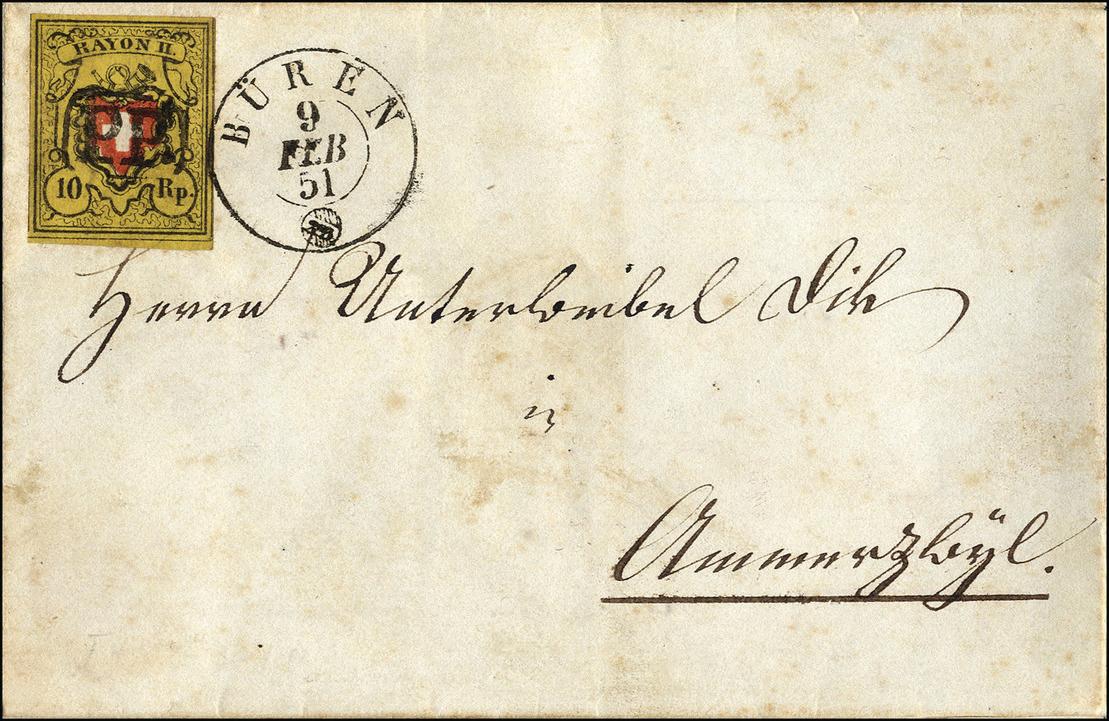 RAYON II.
PP
10 Rp.
BÜREN
9
FEB
51
Herrn Unterweibel Dik
in
Ammerzwÿl.